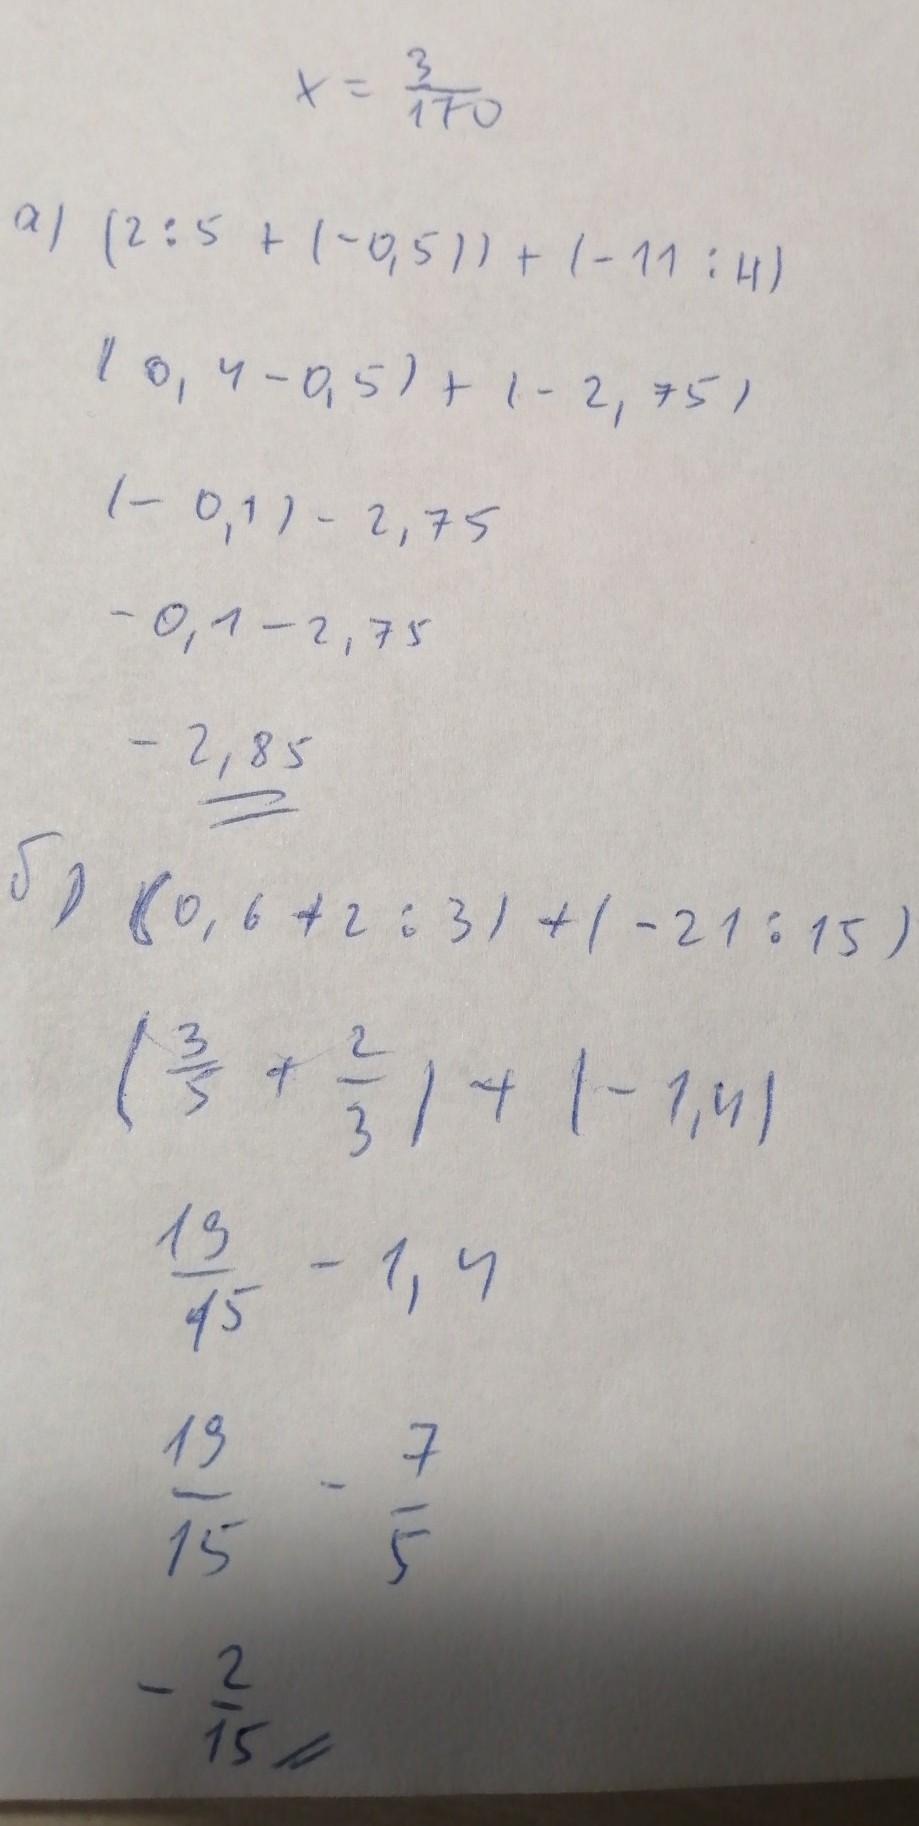 x = 3/170
а) (2:5 + (-0,5)) + (-11 : 4)
(0,4 - 0,5) + (-2,75)
(-0,1) - 2,75
-0,1 - 2,75
-2,85
б) (0,6 + 2 : 3) + (-21 : 15)
(3/5 + 2/3) + (-1,4)
19/15 - 1,4
19/15 - 7/5
-2/15